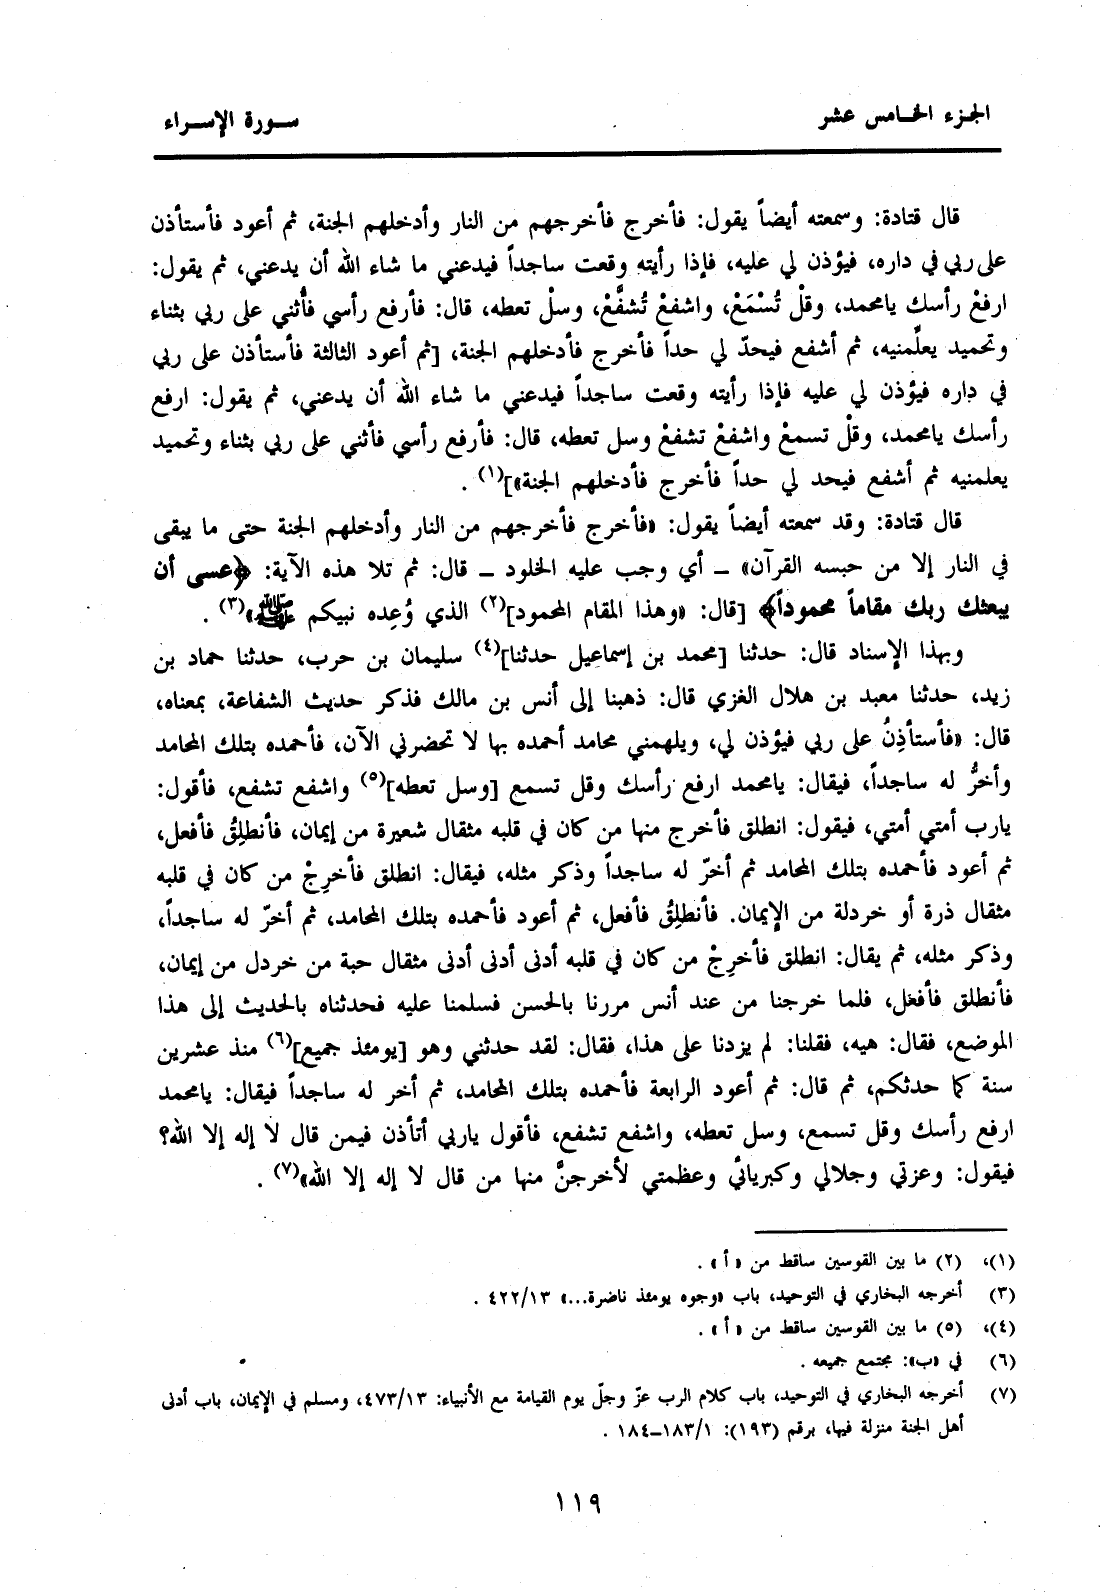 الجزء الخامس عشر
سورة الإسراء
قال قتادة: وسمعته أيضاً يقول: فأخرج فأخرجهم من النار وأدخلهم الجنة، ثم أعود فأستأذن
على ربي في داره، فيؤذن لي عليه، فإذا رأيته وقعت ساجداً فيدعني ما شاء الله أن يدعني، ثم يقول:
ارفعْ رأسك يامحمد، وقلْ تُسْمَعْ، واشفعْ تُشفَّعْ، وسلْ تعطه، قال: فأرفع رأسي فأُثني على ربي بثناء
وتحميد يعلِّمنيه، ثم أشفع فيحدّ لي حداً فأخرج فأدخلهم الجنة، [ثم أعود الثالثة فأستأذن على ربي
في داره فيؤذن لي عليه فإذا رأيته وقعت ساجداً فيدعني ما شاء الله أن يدعني، ثم يقول: ارفع
رأسك يامحمد، وقلْ تسمعْ واشفعْ تشفعْ وسل تعطه، قال: فأرفع رأسي فأثني على ربي بثناء وتحميد
يعلمنيه ثم أشفع فيحد لي حداً فأخرج فأدخلهم الجنة»](١) .
قال قتادة: وقد سمعته أيضاً يقول: «فأخرج فأخرجهم من النار وأدخلهم الجنة حتى ما يبقى
في النار إلا من حبسه القرآن» ــ أي وجب عليه الخلود ــ قال: ثم تلا هذه الآية: ﴿عسى أن
يبعثك ربك مقاماً محموداً﴾ [قال: «وهذا المقام المحمود](٢) الذي وُعِده نبيكم ﷺ»(٣) .
وبهذا الإسناد قال: حدثنا [محمد بن إسماعيل حدثنا](٤) سليمان بن حرب، حدثنا حماد بن
زيد، حدثنا معبد بن هلال الغزي قال: ذهبنا إلى أنس بن مالك فذكر حديث الشفاعة، بمعناه،
قال: «فأستأذِنُ على ربي فيؤذن لي، ويلهمني محامد أحمده بها لا تحضرني الآن، فأحمده بتلك المحامد
وأخرُّ له ساجداً، فيقال: يامحمد ارفع رأسك وقل تسمع [وسل تعطه](٥) واشفع تشفع، فأقول:
يارب أمتي أمتي، فيقول: انطلق فأخرج منها من كان في قلبه مثقال شعيرة من إيمان، فأنطلِقُ فأفعل،
ثم أعود فأحمده بتلك المحامد ثم أخرّ له ساجداً وذكر مثله، فيقال: انطلق فأخرِجْ من كان في قلبه
مثقال ذرة أو خردلة من الإيمان. فأنطلِقُ فأفعل، ثم أعود فأحمده بتلك المحامد، ثم أخرّ له ساجداً،
وذكر مثله، ثم يقال: انطلق فأخرِجْ من كان في قلبه أدنى أدنى أدنى مثقال حبة من خردل من إيمان،
فأنطلق فأفعل، فلما خرجنا من عند أنس مررنا بالحسن فسلمنا عليه فحدثناه بالحديث إلى هذا
الموضع، فقال: هيه، فقلنا: لم يزدنا على هذا، فقال: لقد حدثني وهو [يومئذ جميع](٦) منذ عشرين
سنة كما حدثكم، ثم قال: ثم أعود الرابعة فأحمده بتلك المحامد، ثم أخر له ساجداً فيقال: يامحمد
ارفع رأسك وقل تسمع، وسل تعطه، واشفع تشفع، فأقول ياربي أتأذن فيمن قال لا إله إلا الله؟
فيقول: وعزتي وجلالي وكبريائي وعظمتي لأخرجنَّ منها من قال لا إله إلا الله»(٧) .
(١)، (٢) ما بين القوسين ساقط من «أ» .
(٣) أخرجه البخاري في التوحيد، باب «وجوه يومئذ ناضرة...» ٤٢٢/١٣ .
(٤)، (٥) ما بين القوسين ساقط من «أ» .
(٦) في «ب»: مجتمع جميعه .
(٧) أخرجه البخاري في التوحيد، باب كلام الرب عزّ وجلّ يوم القيامة مع الأنبياء: ٤٧٣/١٣، ومسلم في الإيمان، باب أدنى
أهل الجنة منزلة فيها، برقم (١٩٣): ١٨٣/١ــ١٨٤ .
١١٩